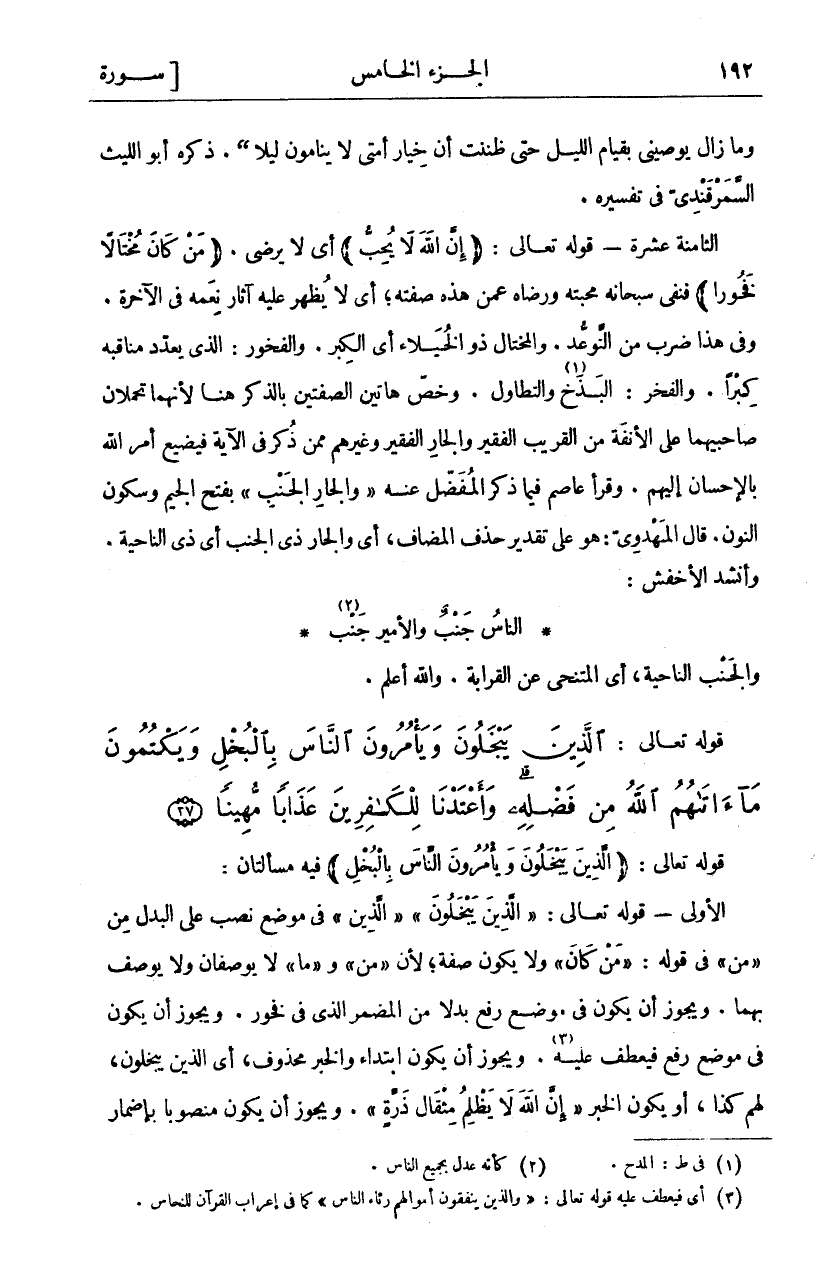 ١٩٢ الجزء الخامس [ سورة
وما زال يوصينى بقيام الليل حتى ظننت أن خيار أمتى لا ينامون ليلا“ . ذكره أبو الليث
السَّمَرْقَنْدِىّ فى تفسيره .
الثامنة عشرة — قوله تعالى : ﴿ إِنَّ اللَّهَ لَا يُحِبُّ ﴾ أى لا يرضى . ﴿ مَنْ كَانَ مُخْتَالًا
فَخُورا ﴾ فنفى سبحانه محبته ورضاه عمن هذه صفته؛ أى لا يُظهر عليه آثار نِعَمه فى الآخرة .
وفى هذا ضرب من التَّوعُّد . والمختال ذو الخُيَلاء أى الكِبر . والفخور : الذى يعدّد مناقبه
كِبْرًا . والفخر : البَذَخ (١) والتطاول . وخصّ هاتين الصفتين بالذكر هنا لأنهما تحملان
صاحبيهما على الأنَفَة من القريب الفقير والجار الفقير وغيرهم ممن ذُكر فى الآية فيضيع أمر الله
بالإحسان إليهم . وقرأ عاصم فيما ذكر المُفَضّل عنه « والجارِ الجَنْبِ » بفتح الجيم وسكون
النون. قال المَهْدوِىّ: هو على تقدير حذف المضاف، أى والجار ذى الجنب أى ذى الناحية .
وأنشد الأخفش :
* الناسُ جَنْبٌ والأمير جَنْب (٢) *
والجَنْب الناحية، أى المتنحى عن القرابة . والله أعلم .
قوله تعالى : ٱلَّذِينَ يَبْخَلُونَ وَيَأْمُرُونَ ٱلنَّاسَ بِٱلْبُخْلِ وَيَكْتُمُونَ
مَآ ءَاتَىٰهُمُ ٱللَّهُ مِن فَضْلِهِۦ ۗ وَأَعْتَدْنَا لِلْكَـٰفِرِينَ عَذَابًا مُّهِينًا ﴿٣٧﴾
قوله تعالى : ﴿ الَّذِينَ يَبْخَلُونَ وَيَأْمُرُونَ النَّاسَ بِالْبُخْلِ ﴾ فيه مسألتان :
الأولى — قوله تعالى : « الَّذِينَ يَبْخَلُونَ » « الَّذين » فى موضع نصب على البدل مِن
«من» فى قوله : «مَنْ كَانَ» ولا يكون صفة؛ لأن «من» و «ما» لا يوصفان ولا يوصف
بهما . ويجوز أن يكون فى موضع رفع بدلا من المضمر الذى فى فخور . ويجوز أن يكون
فى موضع رفع فيعطف عليه (٣) . ويجوز أن يكون ابتداء والخبر محذوف، أى الذين يبخلون،
لهم كذا ، أو يكون الخبر « إِنَّ اللَّهَ لَا يَظْلِمُ مِثْقَالَ ذَرَّةٍ » . ويجوز أن يكون منصوبا بإضمار
(١) فى ط : المدح . (٢) كأنه عدل بجميع الناس .
(٣) أى فيعطف عليه قوله تعالى : « والذين ينفقون أموالهم رئاء الناس » كما فى إعراب القرآن للنحاس .